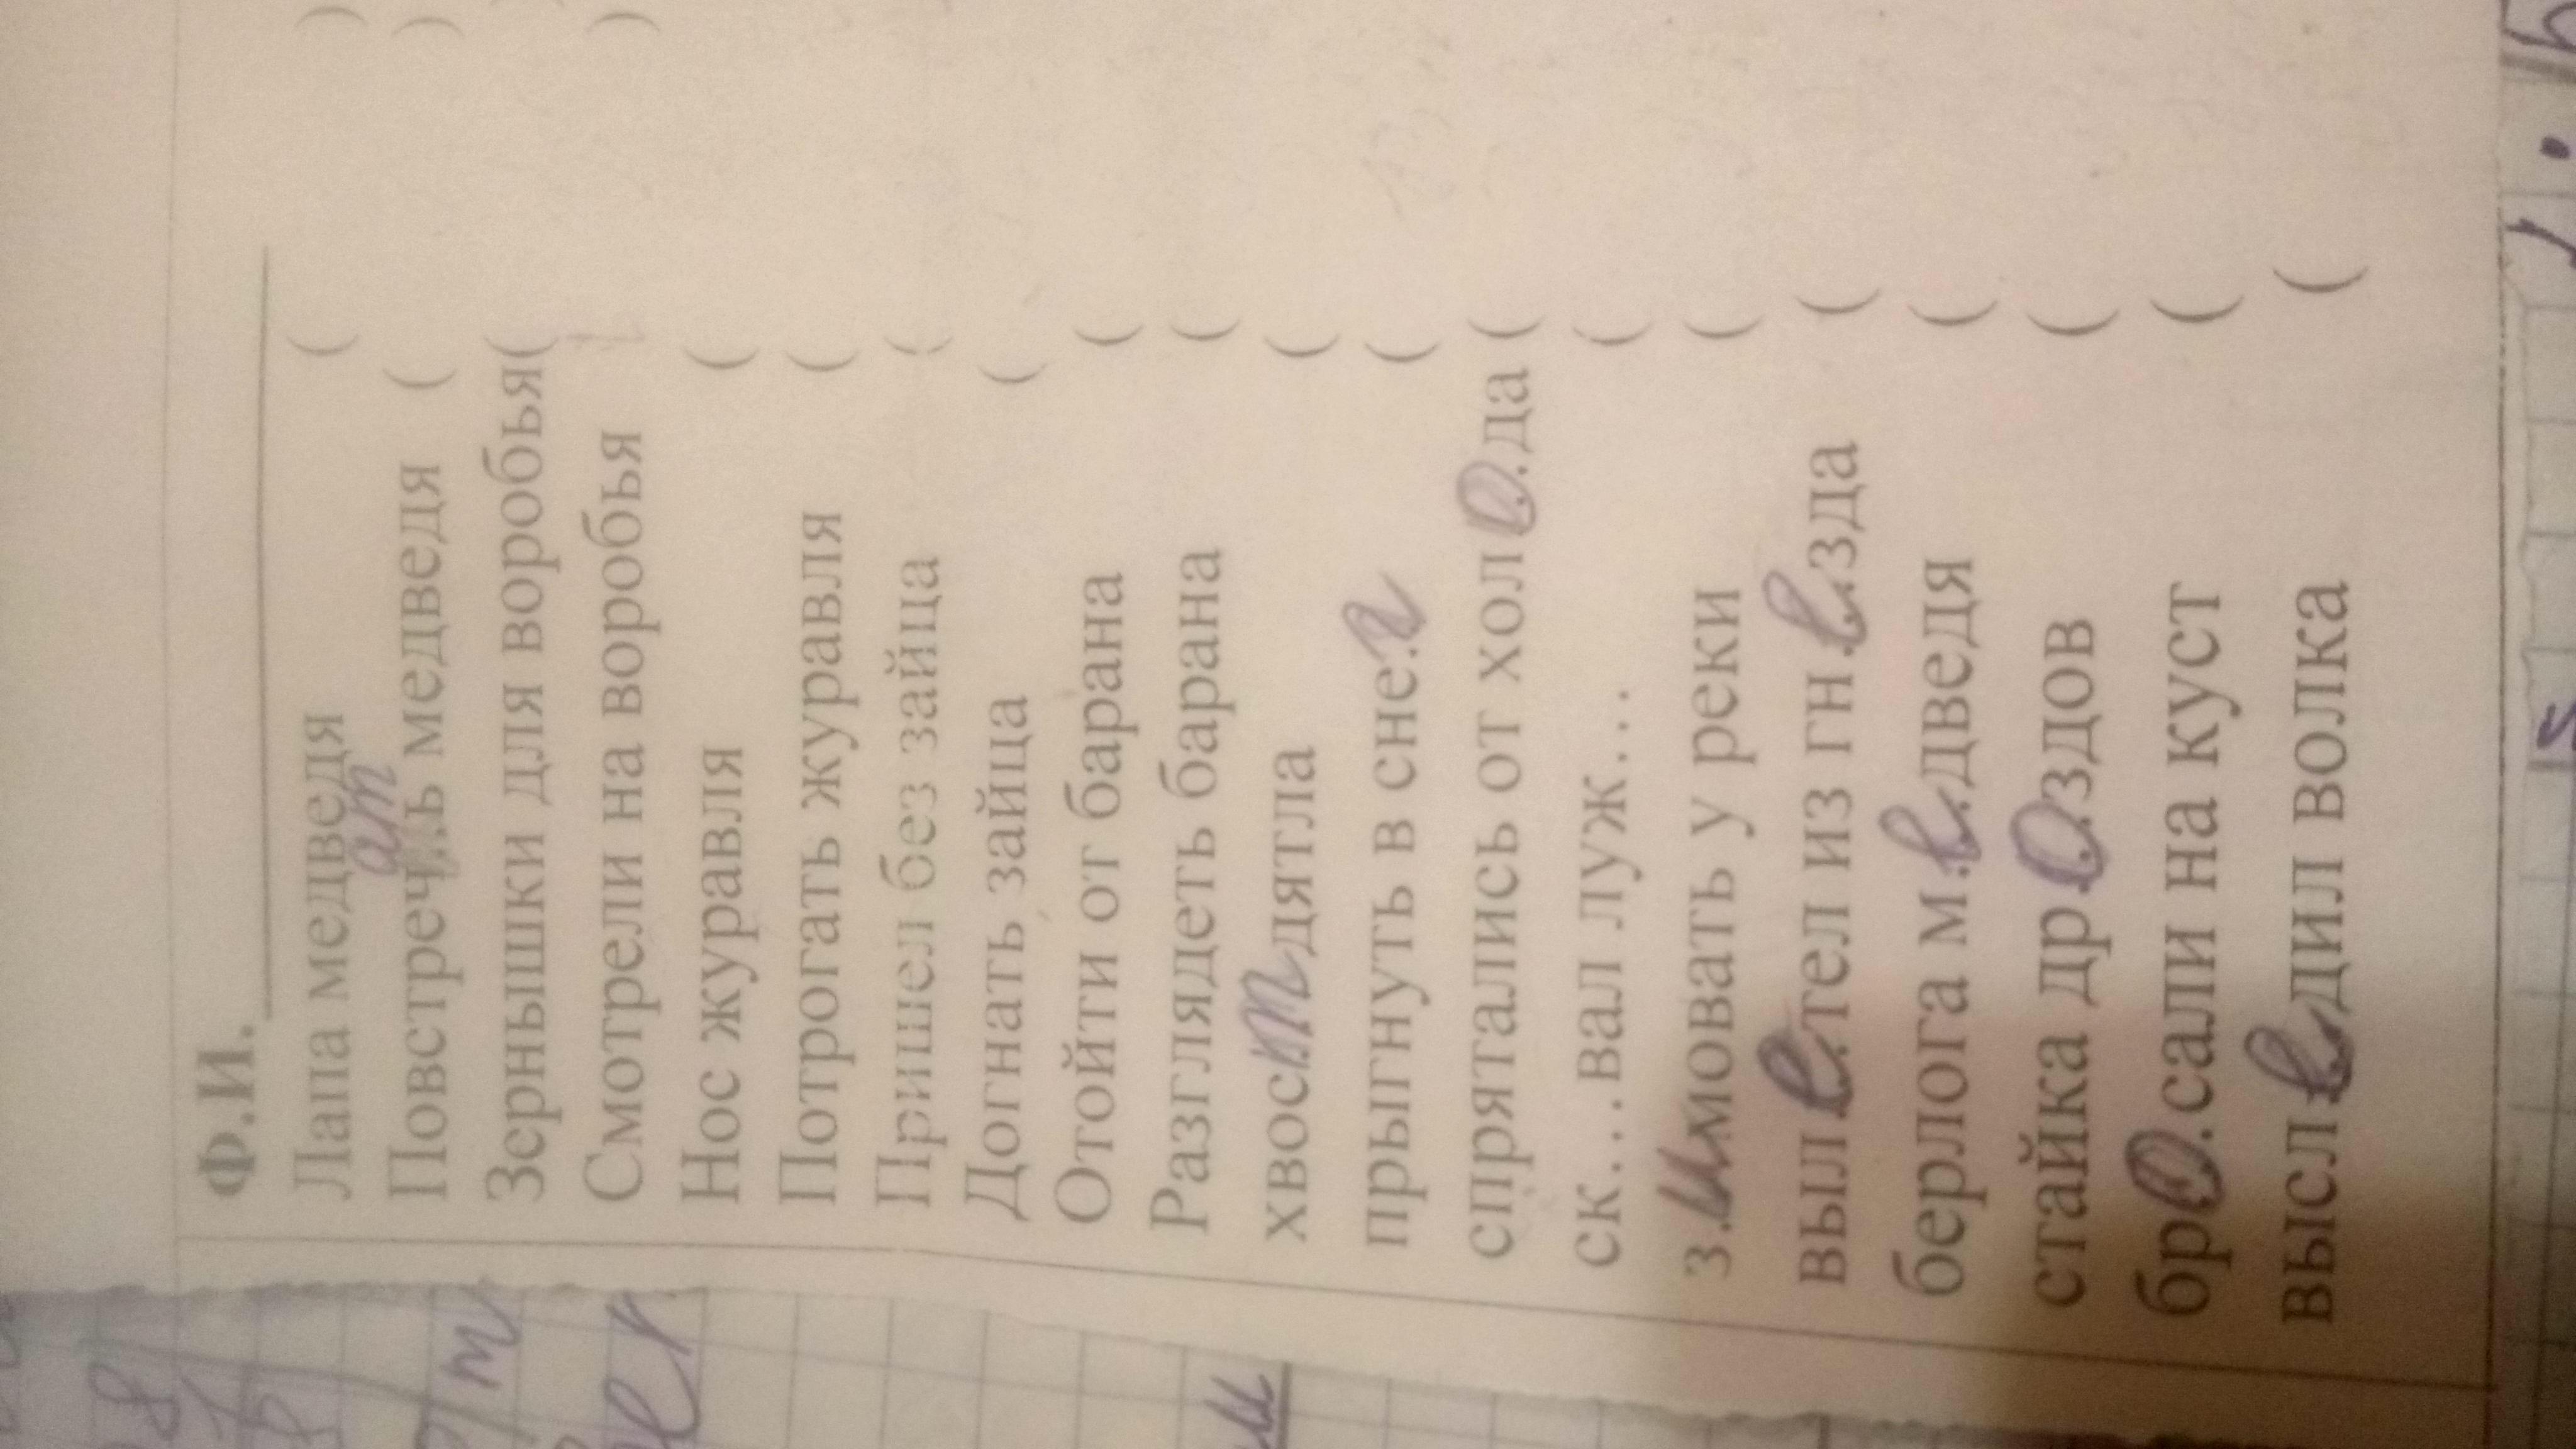 Ф.И.
Лапа медведя ( )
Повстречать медведя ( )
Зернышки для воробья(
Смотрели на воробья )
Нос журавля (
Потрогать журавля (
Пришел без зайца (
Догнать зайца (
Отойти от барана (
Разглядеть барана (
хвост дятла (
прыгнуть в снег (
спрятались от хол о.да (
ск…вал луж… (
з.имовать у реки (
выл е.тел из гн.е.зда (
берлога м.е.дведя (
стайка др.о.здов (
бр о.сали на куст (
высл е.дил волка (